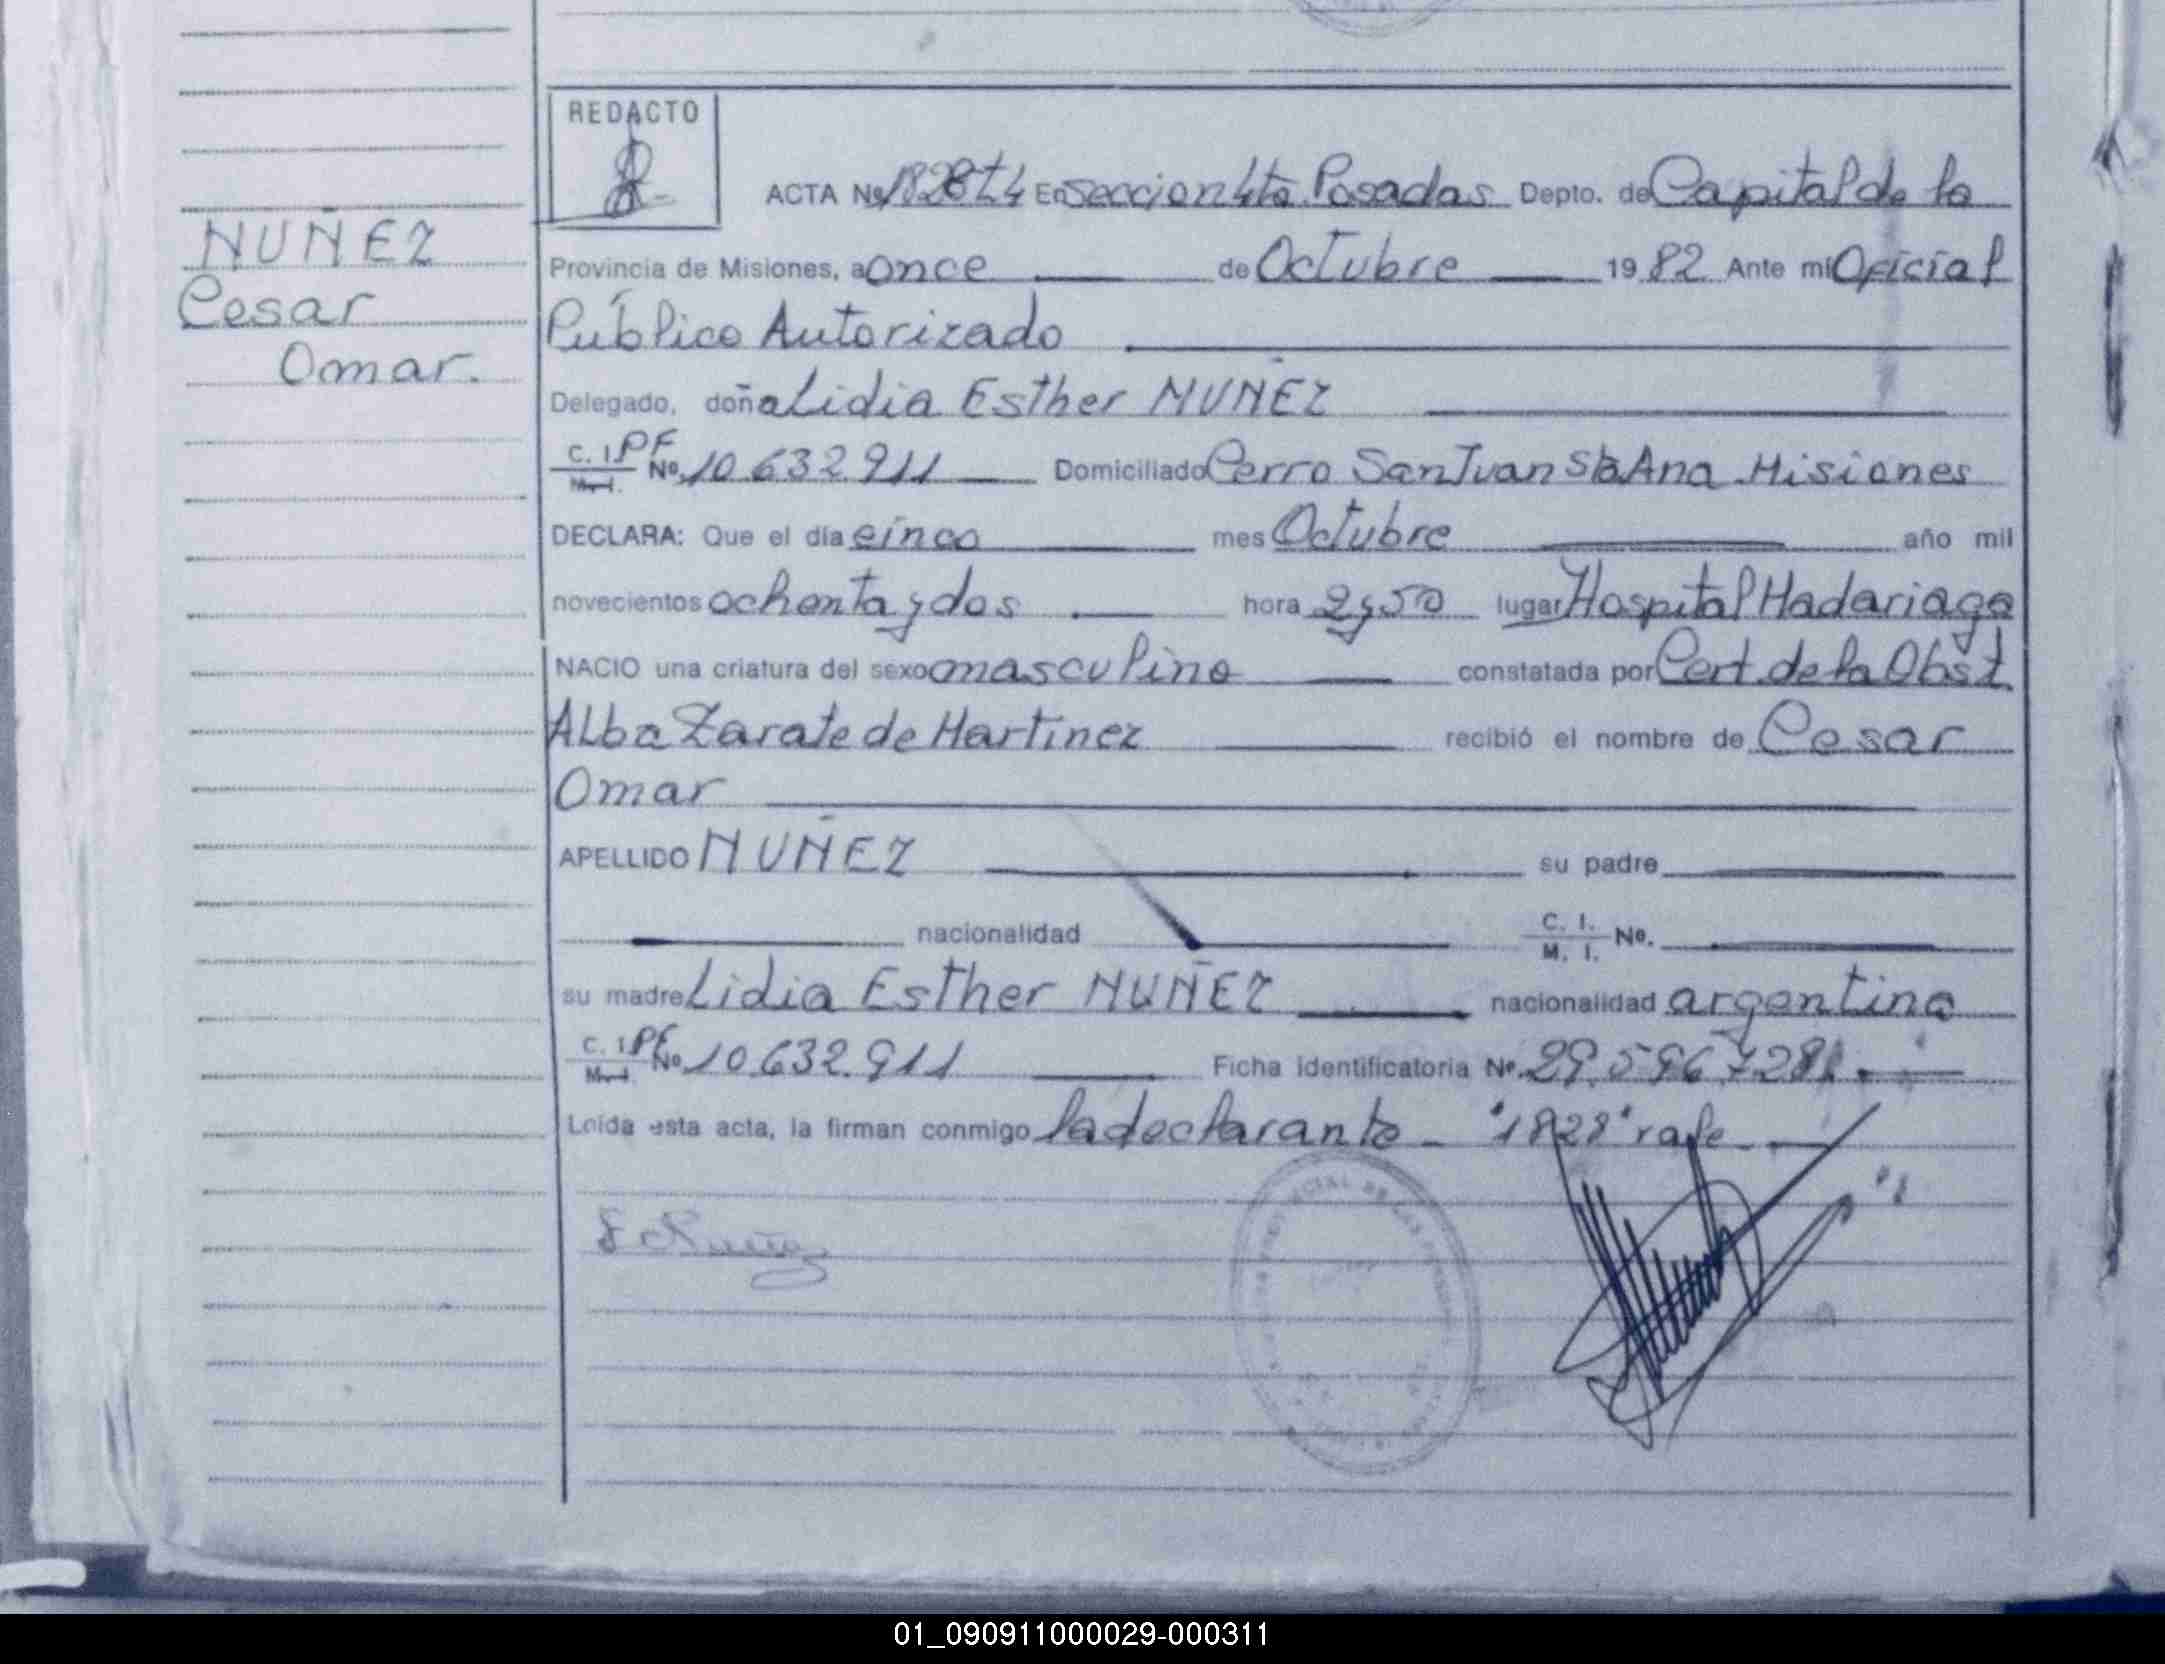 REDACTO
ACTA Nº 1828 T4 En Seccion 4ta Posadas Depto. de Capital de la
NUÑEZ
Provincia de Misiones, a once de Octubre 1982 Ante mi Oficial
Cesar
Público Autorizado
Omar.
Delegado, doña Lidia Esther NUÑEZ
C. I. PF
M. I. Nº 10.632.911 Domiciliado Cerro San Juan Sta Ana Misiones
DECLARA: Que el día cinco mes Octubre año mil
novecientos ochenta y dos hora 2y50 lugar Hospital Madariaga
NACIO una criatura del sexo masculino constatada por Cert. de la Obst.
Alba Zarate de Martinez recibió el nombre de Cesar
Omar
APELLIDO NUÑEZ su padre
nacionalidad C. I. M. I. Nº.
su madre Lidia Esther NUÑEZ nacionalidad argentina
C. I. PF
M. I. Nº 10.632.911 Ficha identificatoria Nº
Leída esta acta, la firman conmigo la declarante - "1828" rape -
01_090911000029-000311